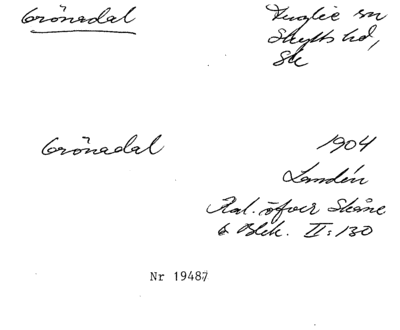 Grönadal
Fuglie sn
Skytts hd,
Sk
Grönadal
1904
Landén
Kal. öfver Skåne
o Blek. II: 130
Nr 19487